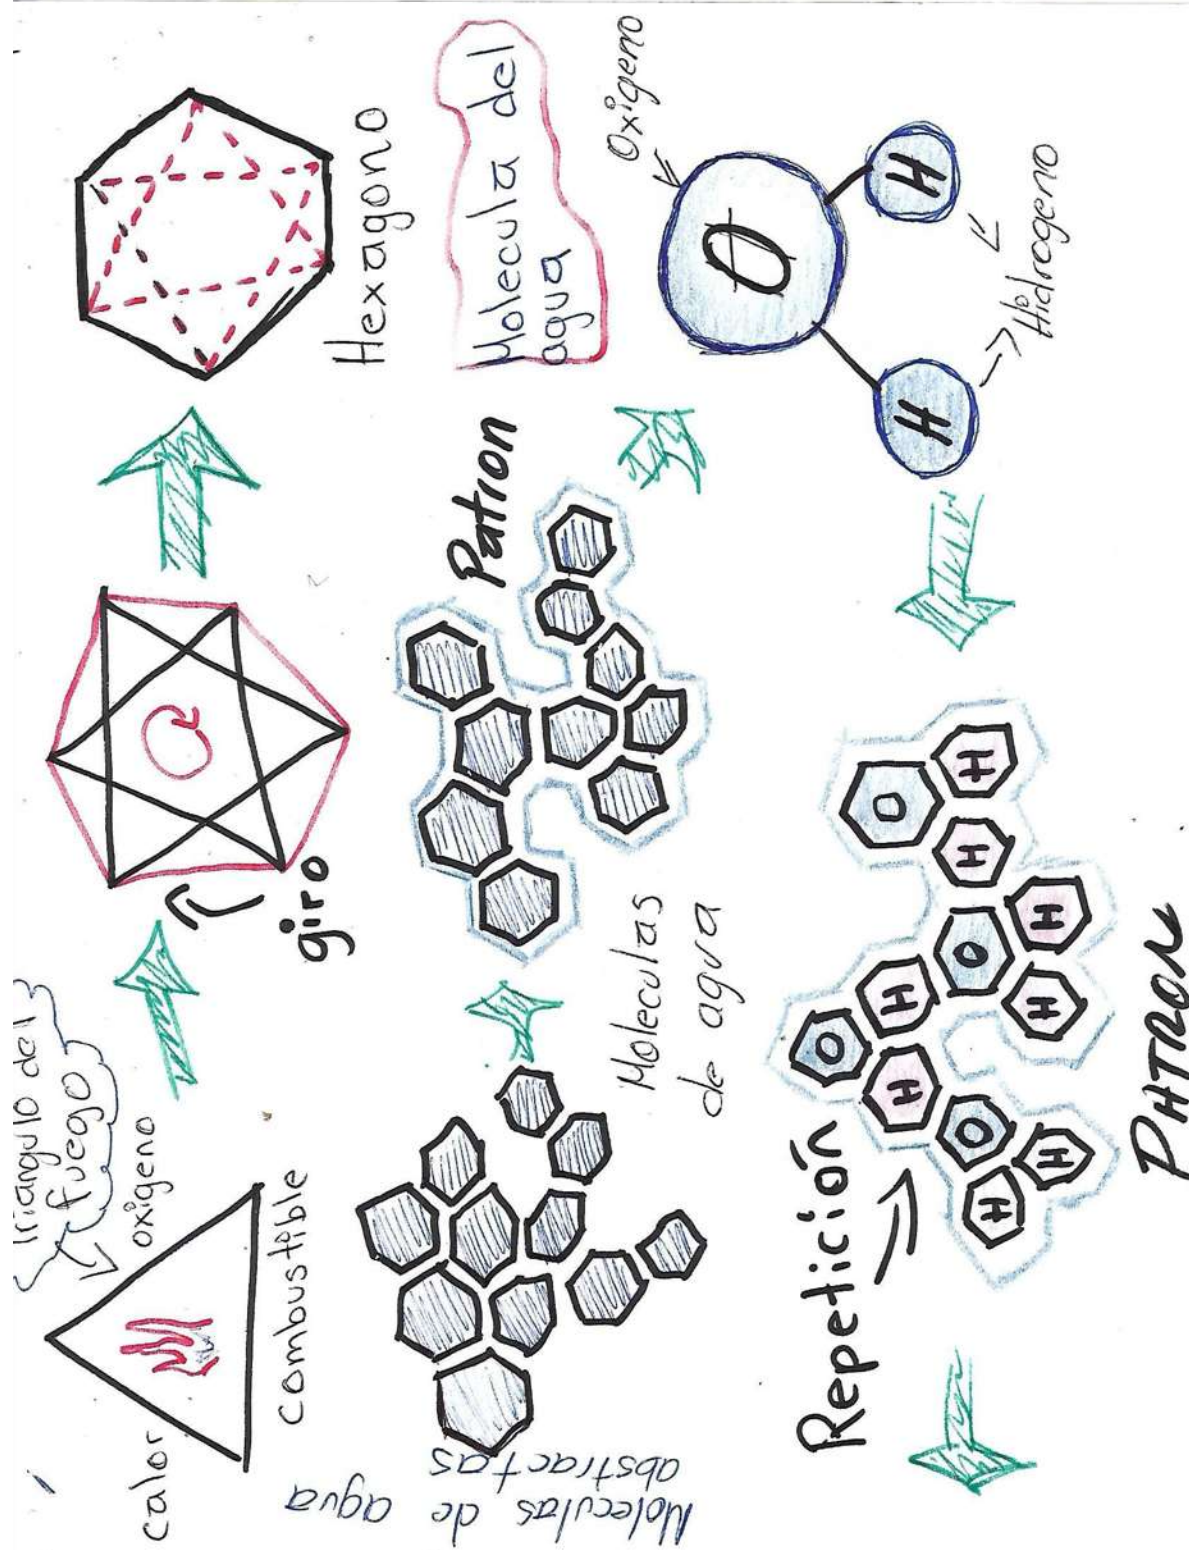 Triángulo del
fuego
oxígeno
calor
combustible
giro
Hexagono
Moleculas de agua
abstractas
Moleculas
de agua
Patron
Molecula del
agua
Oxigeno
O
H
H
Hidrogeno
Repetición
O
H
H
O
H
H
O
H
H
O
H
H
PATRON